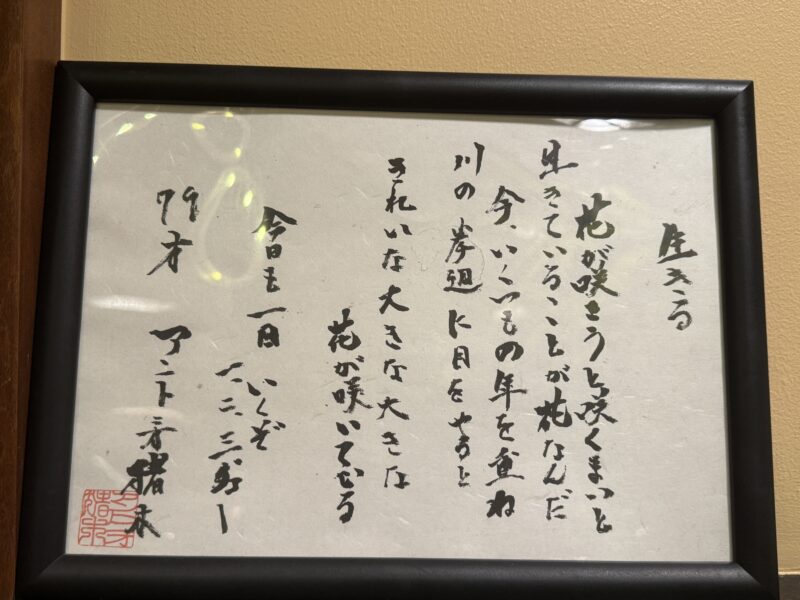 生きる
花が咲こうと咲くまいと
生きていることが花なんだ
今、いくつもの年を重ね
川の岸辺に目をやると
きれいな大きな大きな
花が咲いている
今日も一日
いくぞ
一、二、三、ダー
79才 アントニオ猪木